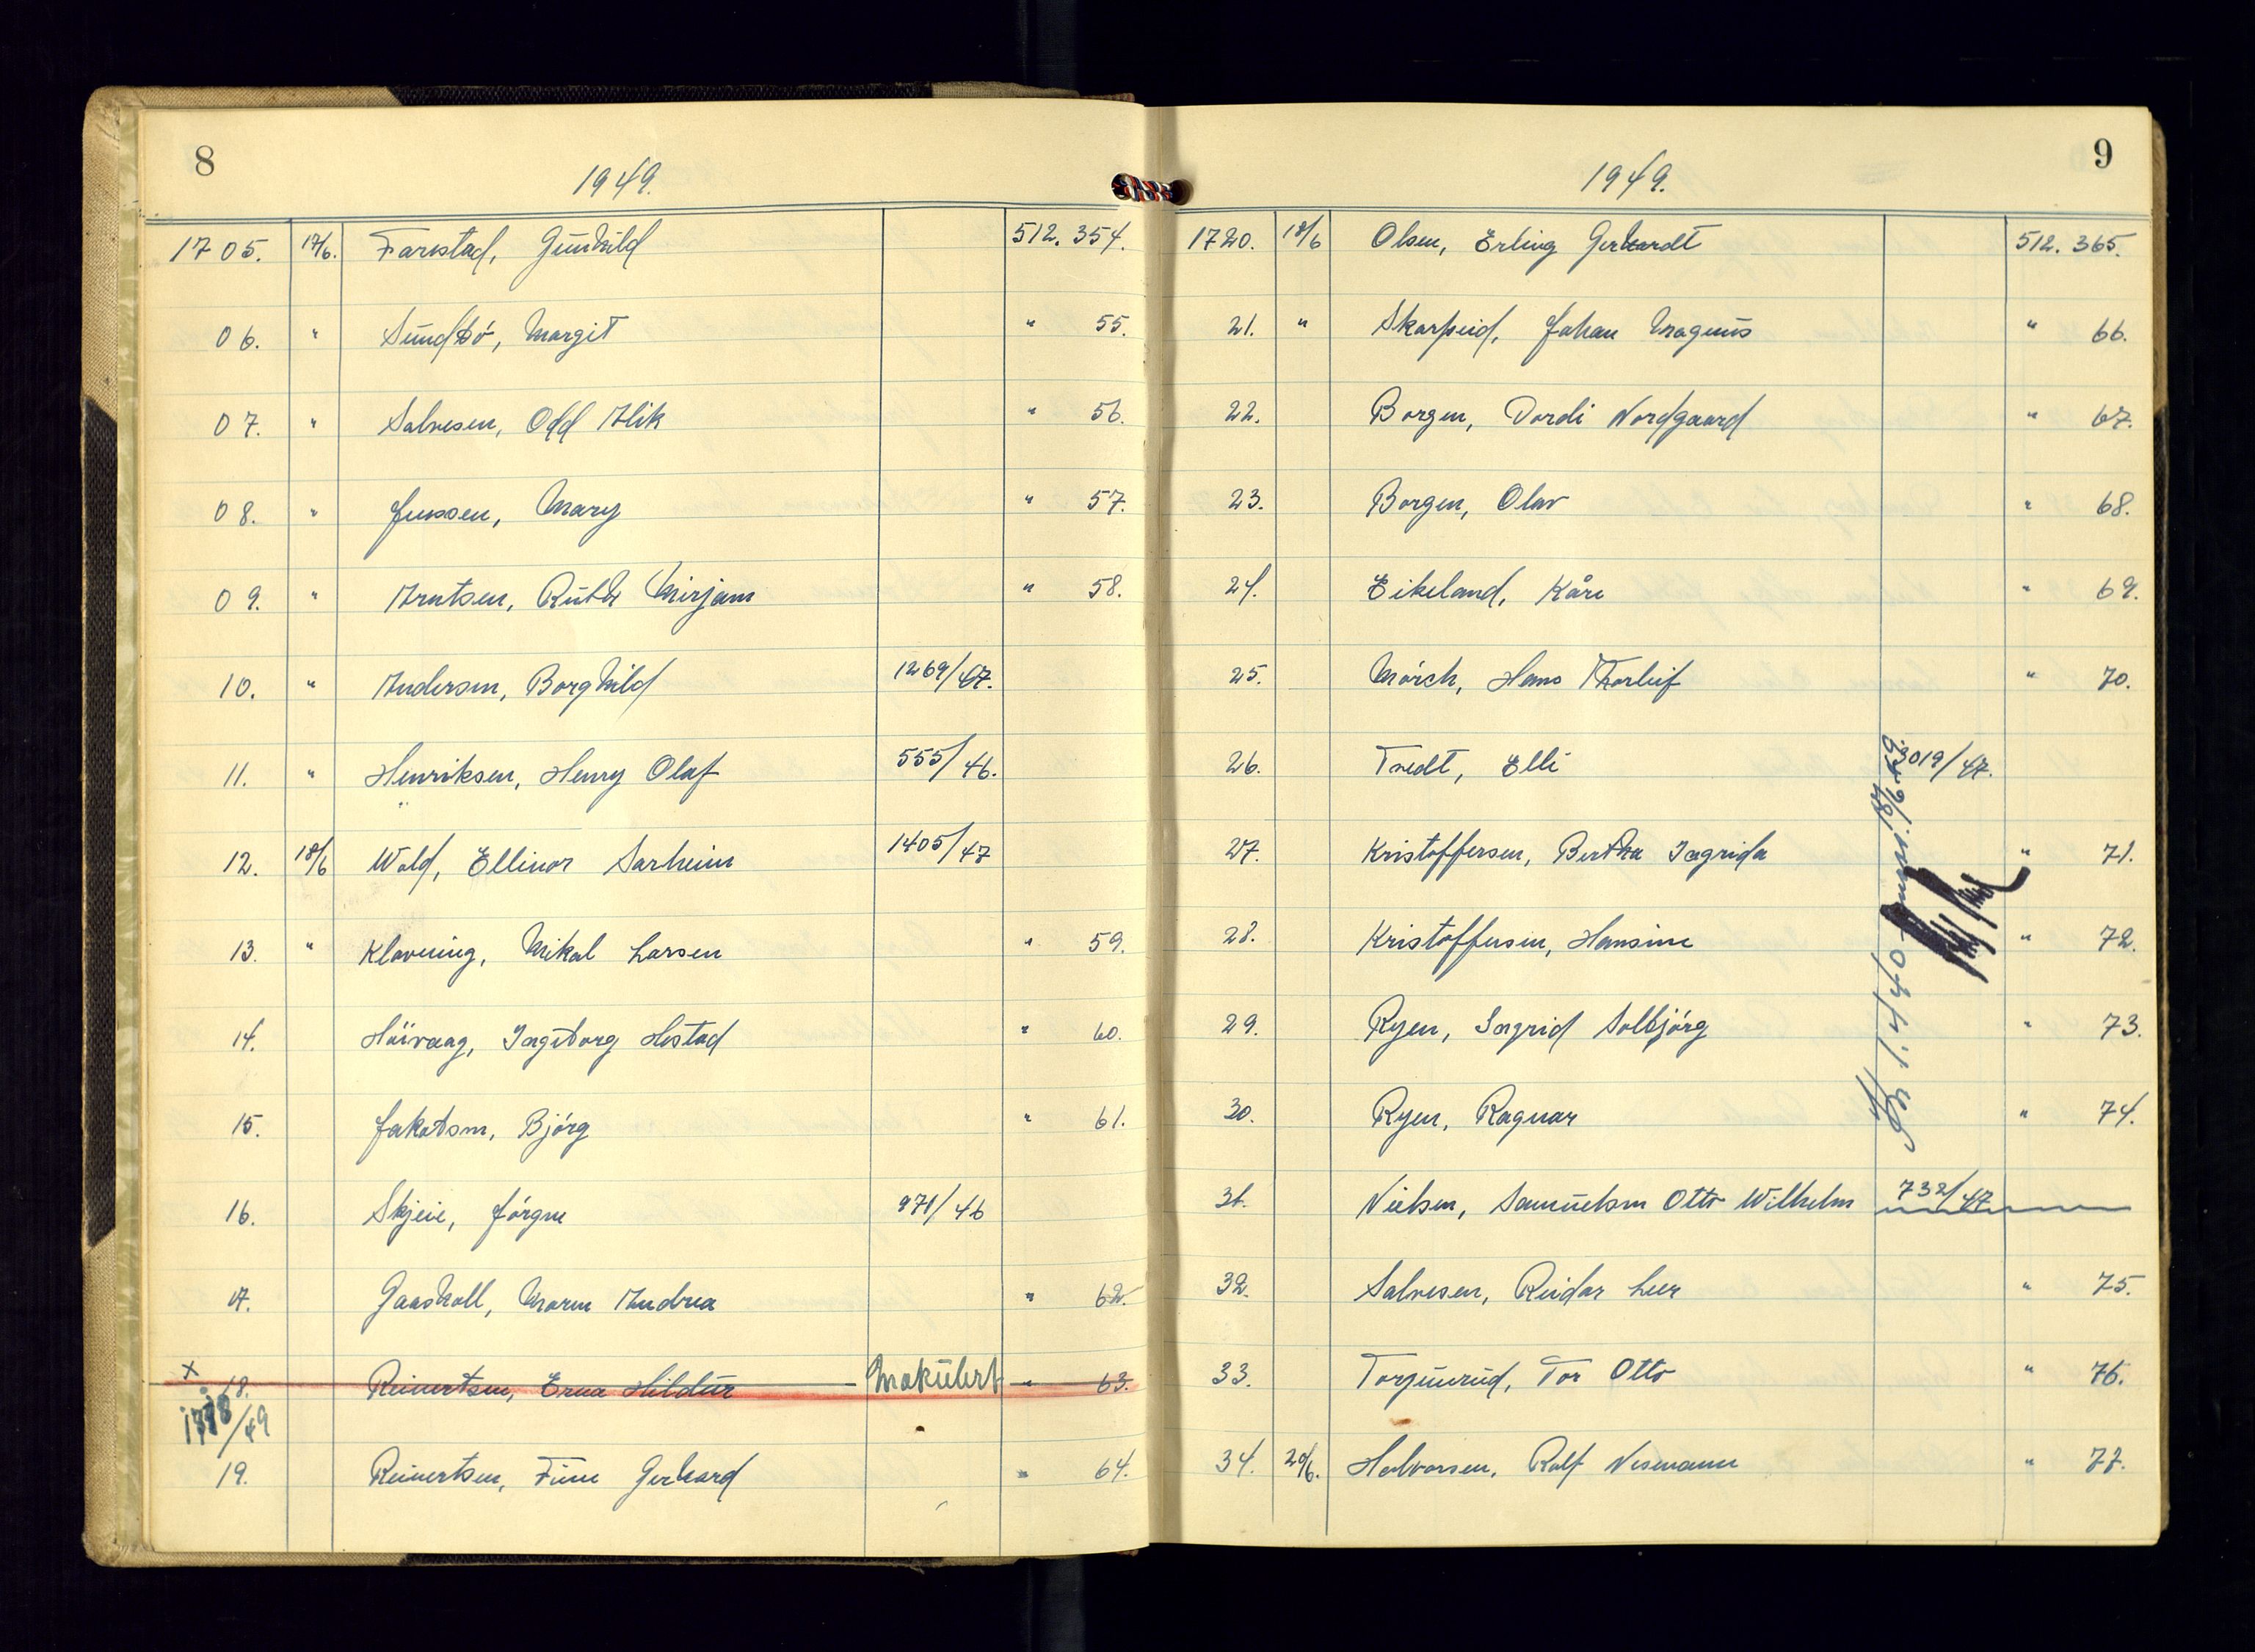 8
1949.
1705. 17/6. Farestad, Gunhild 512.354.
06. " Sundbø, Margit " 55.
07. " Salvesen, Odd Alik " 56.
08. " Jenssen, Mary " 57.
09. " Arntsen, Ruth Mirjam " 58.
10. " Andersen, Borghild 1269/47.
11. " Henriksen, Henry Olaf 555/46.
12. 18/6 Wold, Ellinor Sarheim 1405/47
13. " Klavening, Mikal Larsen " 59.
14. Høivaag, Ingeborg Hestad " 60.
15. Jakobsen, Bjørg " 61.
16. Skjeie, Jørgen 971/46
17. Gaasholl, Maren Andrea " 62.
x 18. Reinertsen, Erna Hildur Makulert " 63.
1778/49
19. Reinertsen, Finn Gerhard " 64.
9
1949.
1720. 18/6 Olsen, Erling Gerhardt 512.365.
21. " Skarpeid, Johan Magnus " 66.
22. Borgen, Dordi Nordgaard " 67.
23. Borgen, Olav " 68.
24. Eikeland, Kåre " 69.
25. Mørch, Hans Thorleif " 70.
26. Tvedt, Elli 3019/47.
27. Kristoffersen, Bertha Ingrida " 71.
28. Kristoffersen, Hansine " 72.
29. Ryen, Ingrid Solbjørg " 73.
30. Ryen, Ragnar " 74.
31. Nielsen, Samuelsen Otto Wilhelm 732/47
32. Salvesen, Reidar Leer " 75.
33. Torjusrud, Tor Otto " 76.
34. 20/6. Halvorsen, Rolf Nesmann " 77.